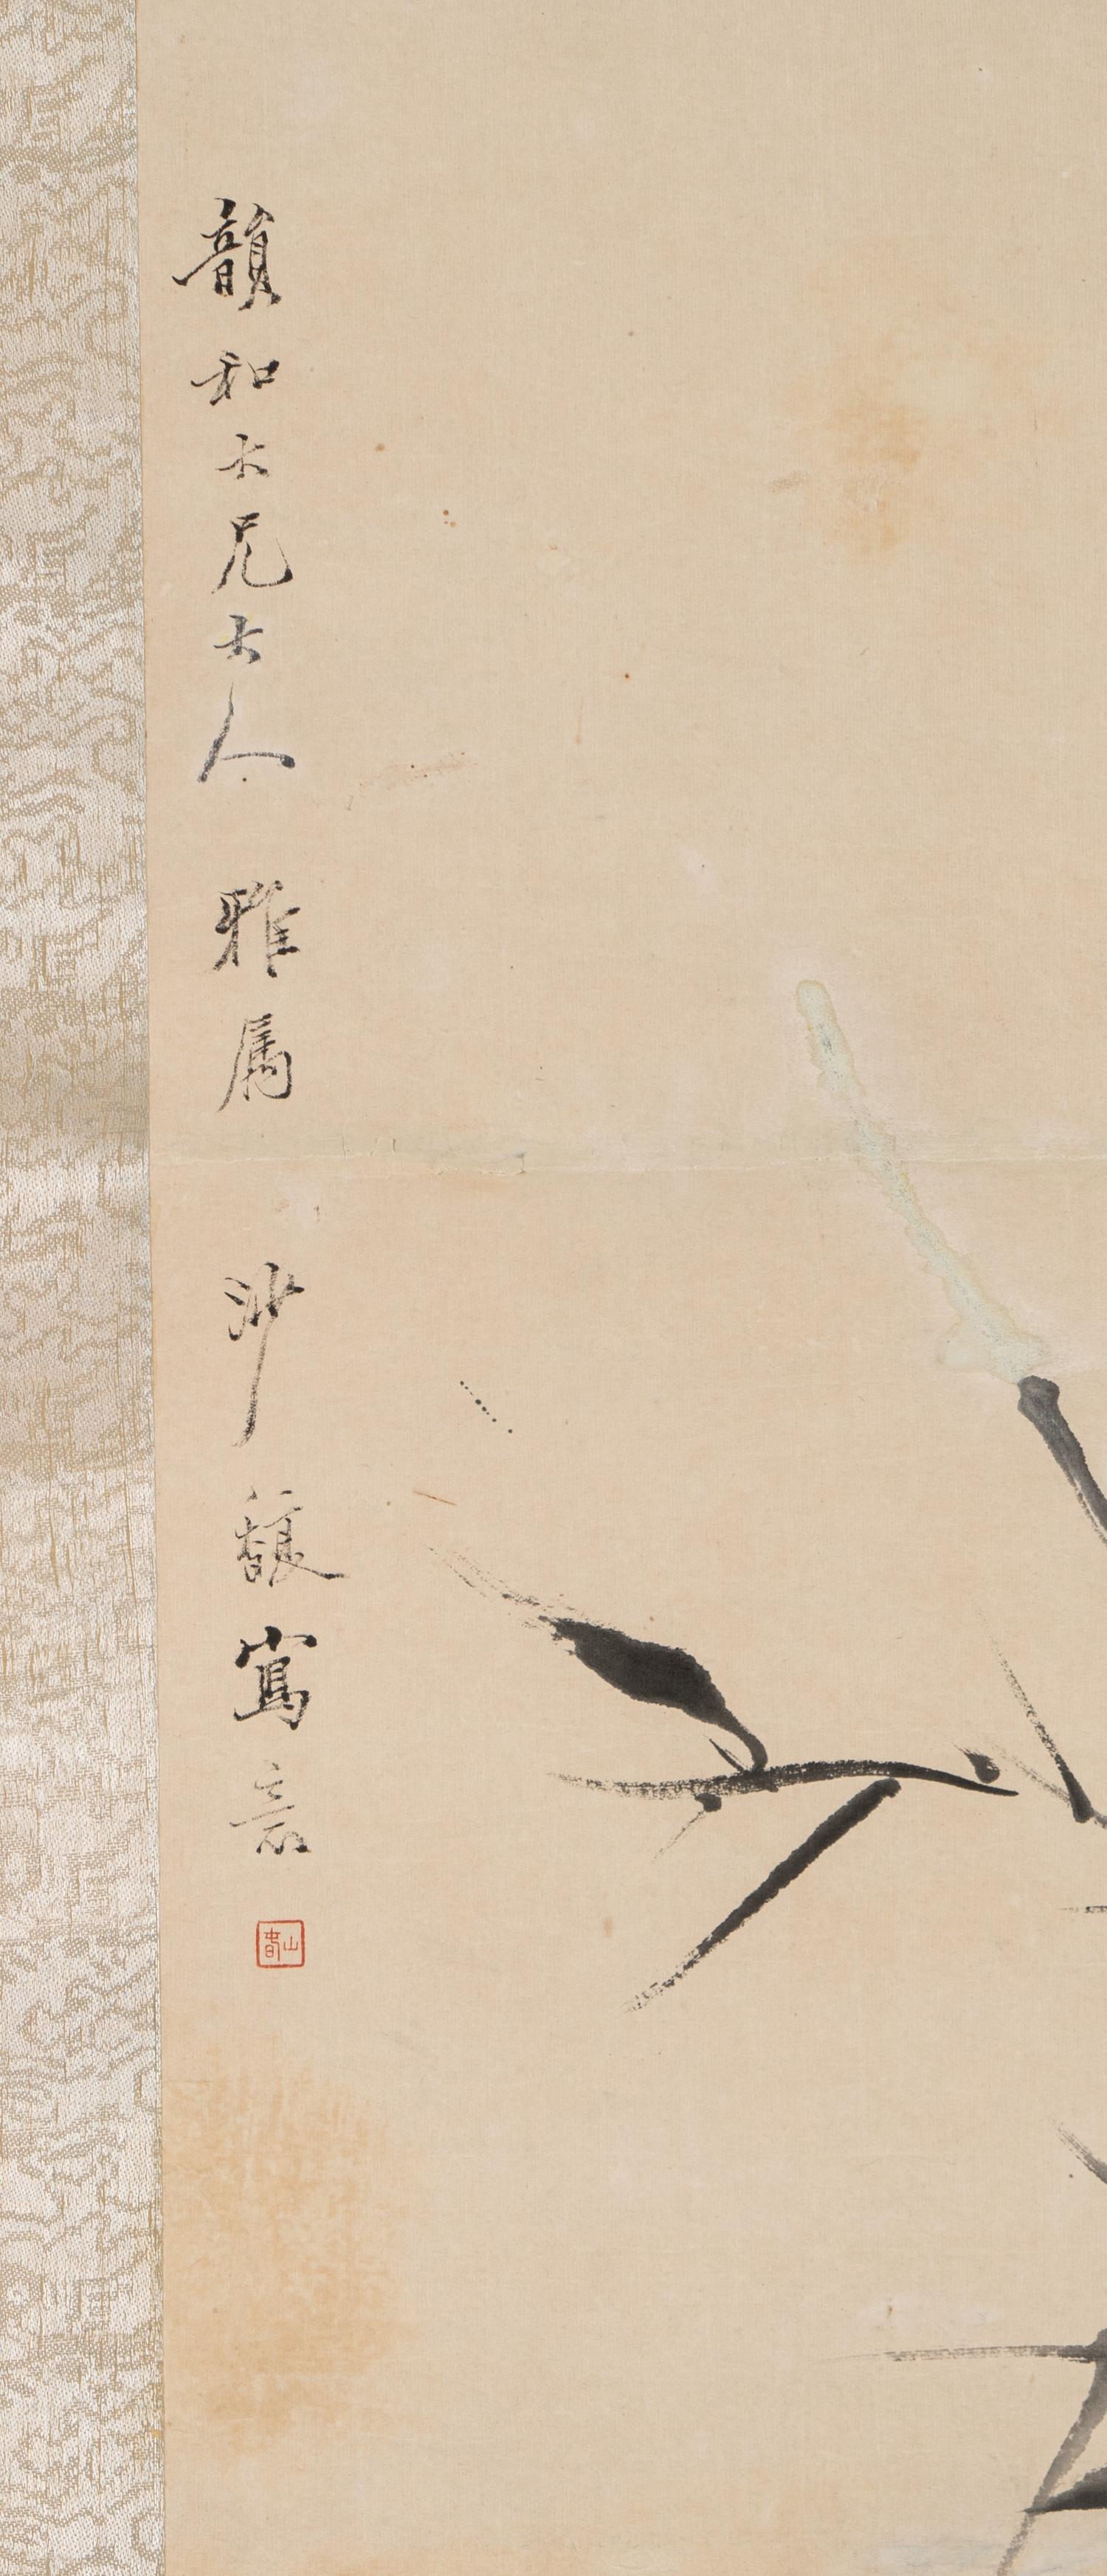 韻和大兄大人雅屬沙馥寫意
山春